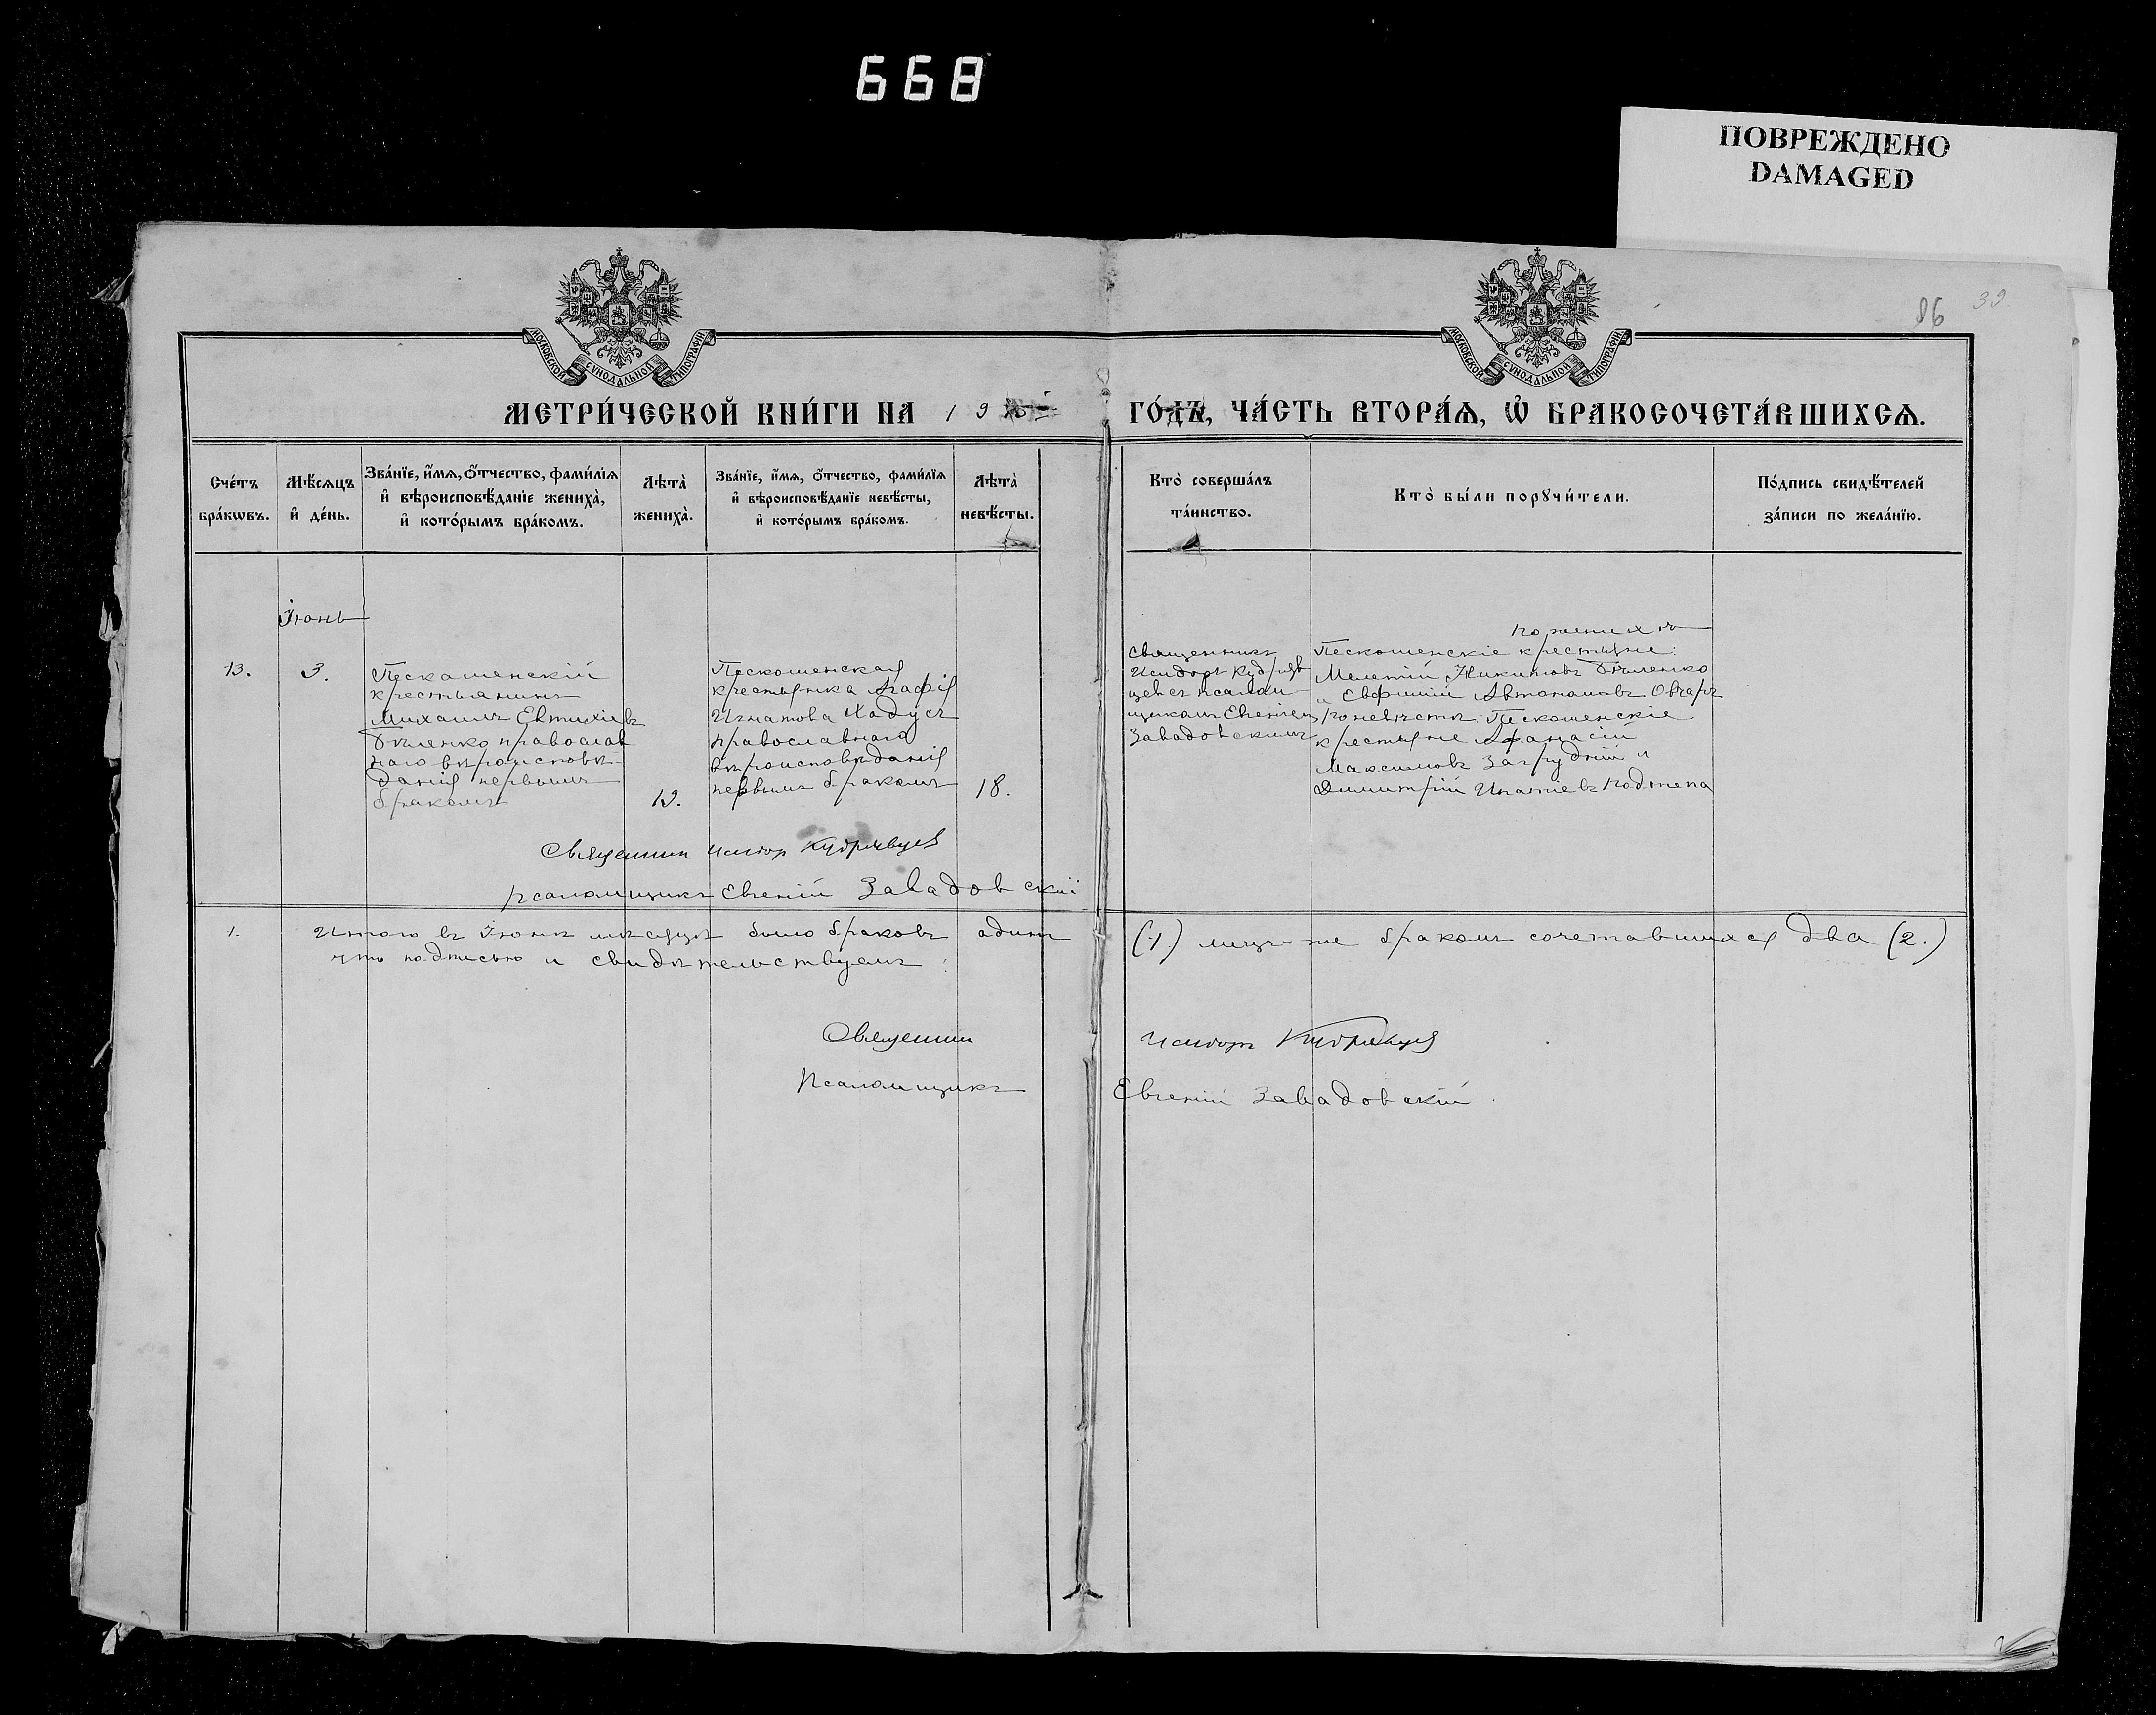 668
ПОВРЕЖДЕНО
DAMAGED
86 39.
МОСКОВСКОЙ СУНОДАЛЬНОЙ ТИПОГРАФІИ.
МОСКОВСКОЙ СУНОДАЛЬНОЙ ТИПОГРАФІИ.
МЕТРИ́ЧЕСКОЙ КНИ́ГИ НА 19 ГО́ДЪ, ЧА́СТЬ ВТОРА́Я, Ѡ҆ БРАКОСОЧЕТА́ВШИХСЯ.
Сче́тъ
бра́кѡвъ.
Мѣ́сяцъ
и҆ де́нь.
Зва́нїе, и҆́мя, ѻ҆́тчество, фами́лїя
и҆ вѣроисповѣ́данїе жениха̀,
и҆ кото́рымъ бра́комъ.
Лѣта̀
жениха̀.
Зва́нїе, и҆́мя, ѻ҆́тчество, фами́лїя
и҆ вѣроисповѣ́данїе невѣ́сты,
и҆ кото́рымъ бра́комъ.
Лѣта̀
невѣ́сты.
Кто̀ соверша́лъ
та́инство.
Кто̀ бы́ли порꙋчи́тели.
По́дпись свидѣ́телей
за́писи по жела́нїю.
Іюнь
13.
3.
Пескошенскій
крестьянинъ
Михаилъ Евтихіевъ
Бѣленко православ
наго вѣроисповѣ-
данія первымъ
бракомъ
19.
Пескошенская
крестьянка Агафія
Игнатова Хадусъ
православнаго
вѣроисповѣданія
первымъ бракомъ
18.
Священникъ
Исидоръ Кудряв
цевъ съ псалом-
щикомъ Евгеніемъ
Завадовскимъ
по женихѣ
Пескошенскіе крестьяне:
Мелетій Никитовъ Бѣленко
и Евфимій Автономовъ Овчаръ
по невѣстѣ: Пескошенскіе
крестьяне Афанасій
Максимовъ Загрудній и
Димитрій Игнатіевъ Кодтепа
Священник Исидор Кудрявцев
псаломщикъ Евгеній Завадовскій
1. Итого въ Іюнѣ мѣсяцѣ было браковъ одинъ (1.) лицъ-же бракомъ сочетавшихся два (2.)
что подписью и свидѣтельствуемъ:
Священник Исидоръ Кудрявцев
Псаломщикъ Евгеній Завадовскій.